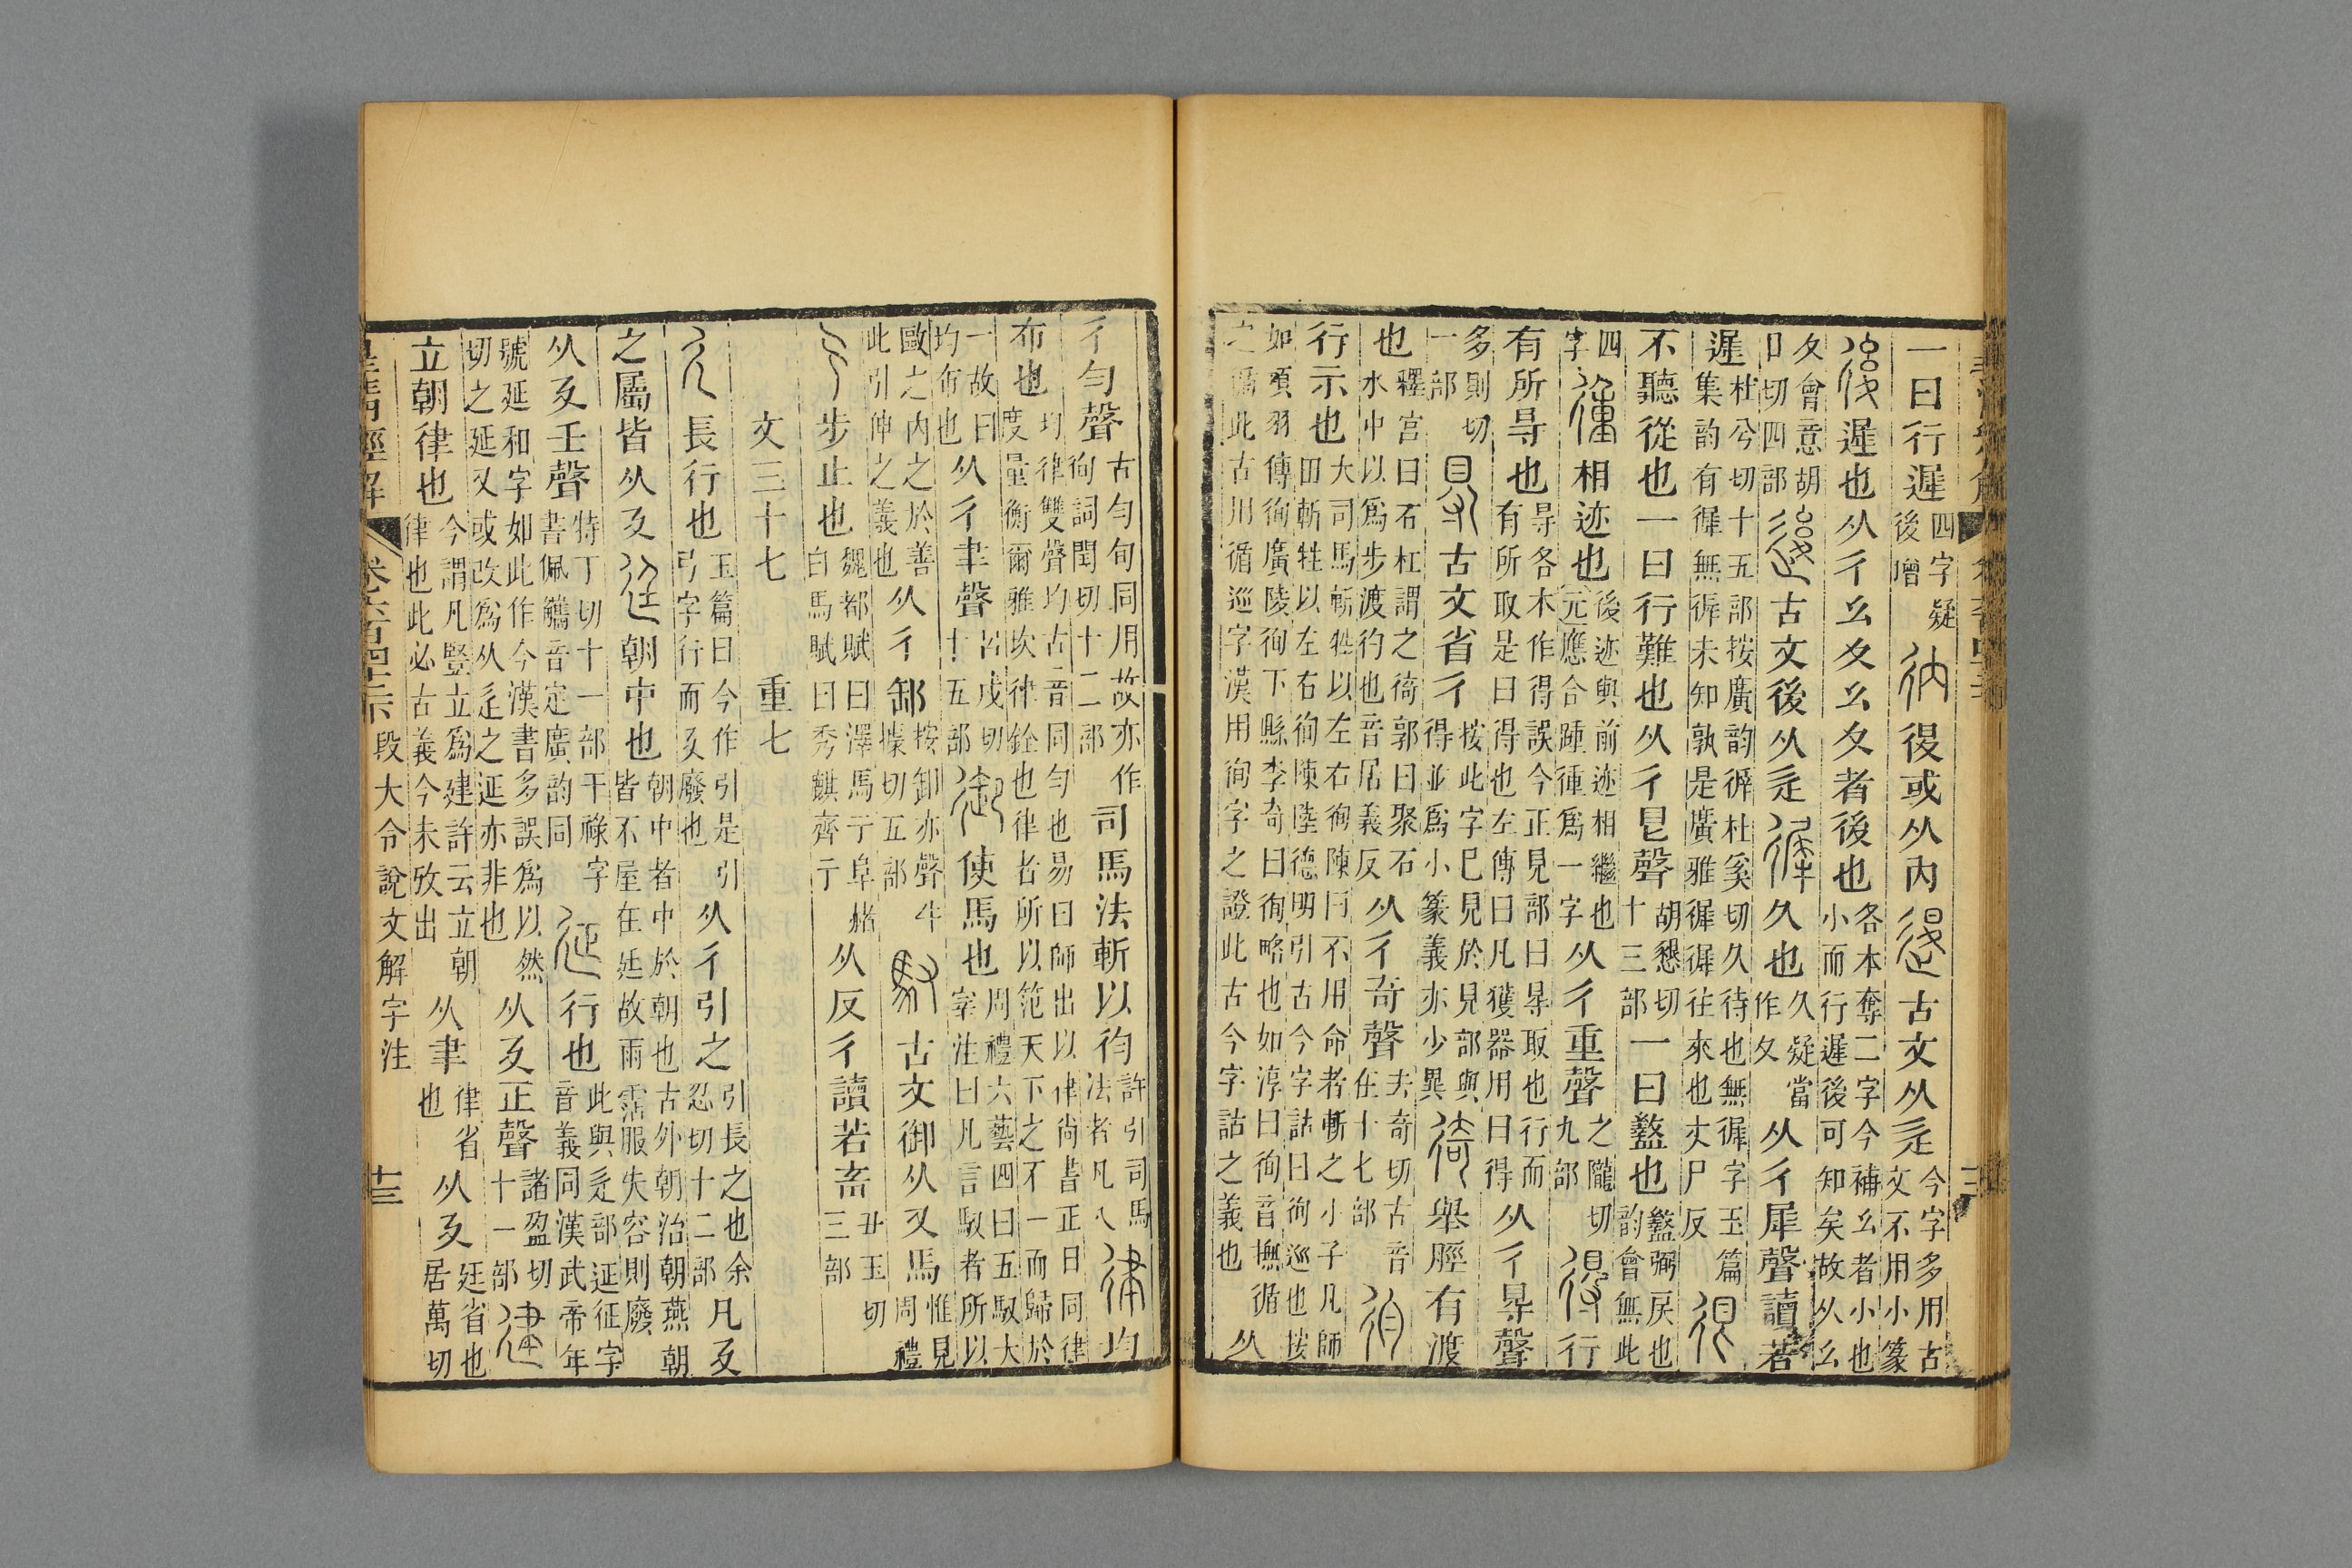 一曰行遲四字疑後增衲復或从內退古文从辵今字多用古文不用小篆
後遲也从彳幺夊幺夊者後也各本奪二字今補幺者小也小而行遲後可知矣故从幺
夊會意胡口切四部𨒥古文後从辵徲久也久疑當作夊从彳犀聲讀若
遲杜兮切十五部按廣韵徲杜奚切久待也無徲字玉篇集韵有徲無徲未知孰是廣雅徲徲往來也丈尸反很
不聽從也一曰行難也从彳皀聲胡懇切十三部一曰盭也盭弼戾也韵會無此
四字㣫相迹也後迹與前迹相繼也元應合踵㣫爲一字从彳重聲之隴切九部得行
有所㝵也㝵各本作得誤今正見部曰㝵取也行而有所取是曰得也左傳曰凡獲器用曰得从彳㝵聲
多則切一部㝵古文省彳按此字巳見於見部與得並爲小篆義亦少異徛舉脛有渡
也釋宫曰石杠謂之徛郭曰聚石水中以爲步渡彴也音居義反从彳奇聲去奇切古音在十七部㣘
行示也大司馬斬牲以左右徇陳曰不用命者斬之小子凡師田斬牲以左右徇陳陸德明引古今字詁曰徇巡也按
如項羽傳徇廣陵徇下縣李奇曰徇略也如淳曰徇音撫循之循此古用循巡字漢用徇字之證此古今字詁之義也从
彳勻聲古勻旬同用故亦作徇詞閏切十二部司馬法斬以㣘許引司馬法者凡八律均
布也均律雙聲均古音同勻也易曰師出以律尚書正日同律度量衡爾雅坎律銓也律者所以范天下之不一而歸於
一故曰均布也从彳聿聲呂戌切十五部御使馬也周禮六藝四曰五馭大宰注曰凡言馭者所以
歐之内之於善此引伸之義也从彳卸按卸亦聲牛據切五部馭古文御从又馬惟見周禮
亍步止也魏都賦曰澤馬亍阜赭白馬賦曰秀麒齊亍从反彳讀若畜丑玉切三部
文三十七　重七
廴長行也玉篇曰今作引是引弓字行而廴廢也从彳引之引長之也余忍切十二部凡廴
之屬皆从廴廷朝中也朝中者中於朝也古外朝治朝燕朝皆不屋在廷故雨霑服失容則廢
从廴壬聲特丁切十一部干祿字書佩觿音定廣韵同延行也此與辵部延征字音義同漢武帝年
號延和字如此作今漢書多誤爲以然切之延又或改爲从辵之延亦非也从廴正聲諸盈切十一部建
立朝律也今謂凡豎立爲建許云立朝律也此必古義今未攷出从聿律省也从廴廷省也居萬切
皇清經解　卷六百四十二下　段大令說文解字注　十三